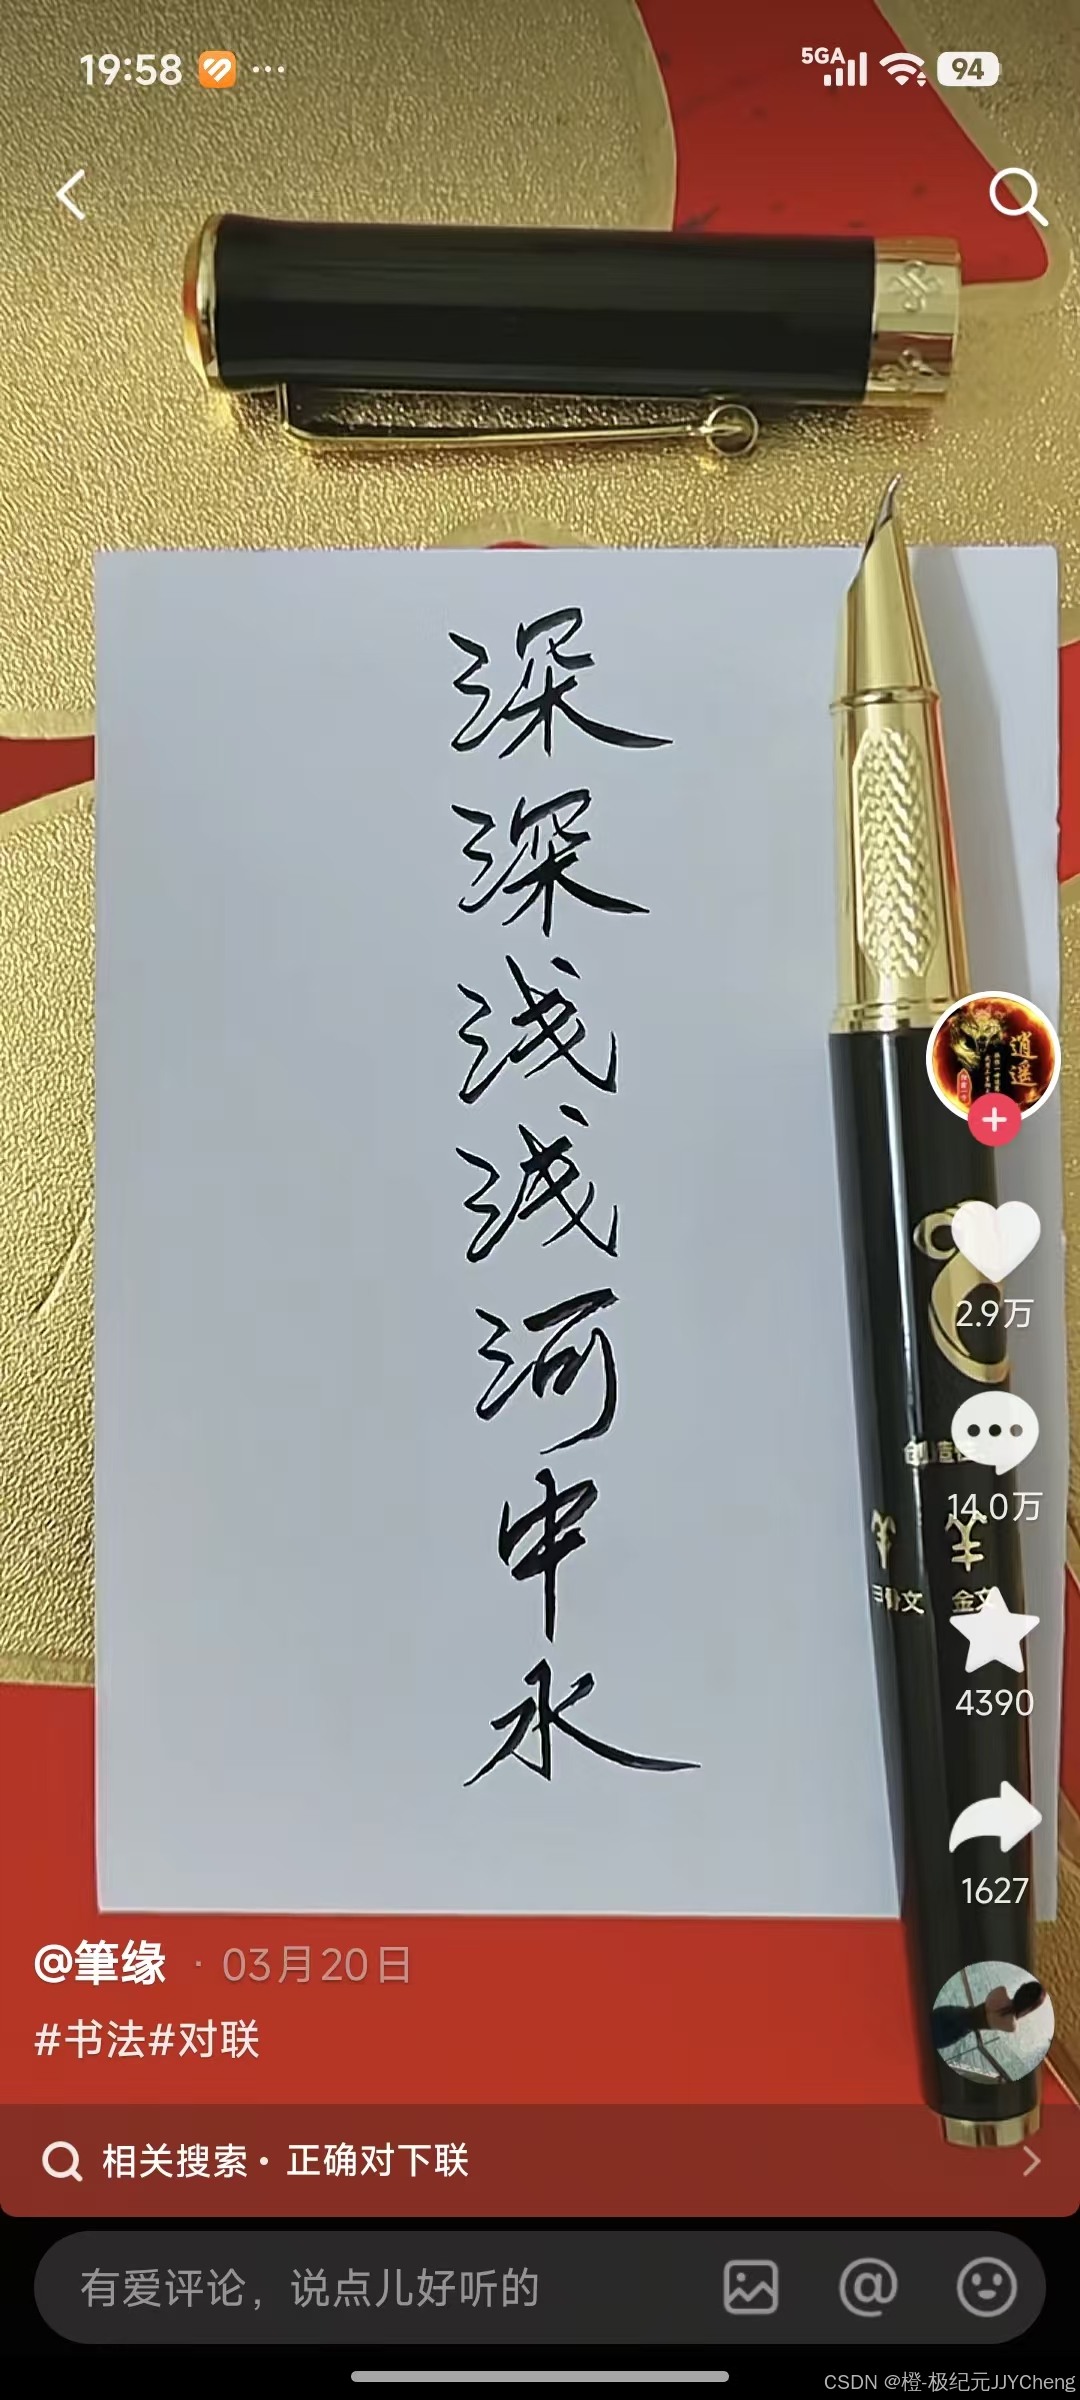 19:58
5GA
94
深深浅浅河中水
逍遥
2.9万
14.0万
金文
4390
1627
@筆缘 · 03月20日
#书法#对联
相关搜索 · 正确对下联
有爱评论，说点儿好听的
CSDN @橙-极纪元JJYCheng